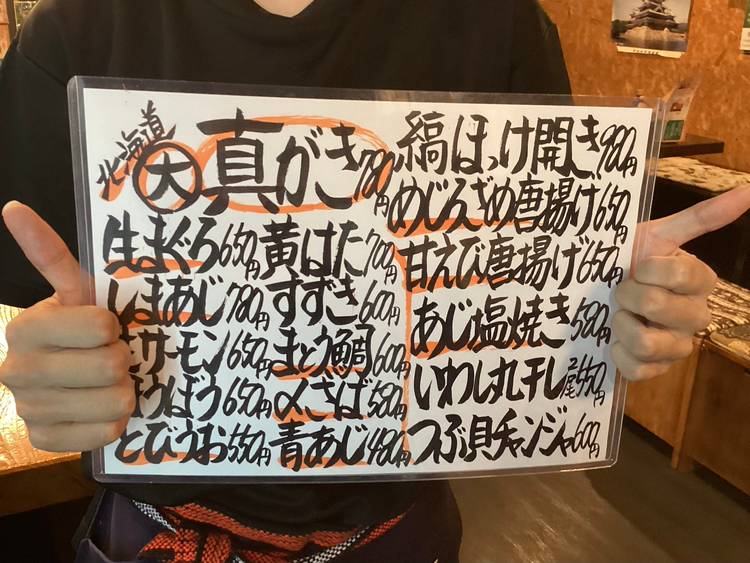 北海道
大 真がき 780円
生まぐろ 650円
しまあじ 780円
生サーモン 650円
ほうぼう 650円
とびうお 550円
黄はた 700円
すずき 600円
まとう鯛 600円
〆さば 580円
青あじ 480円
縞ほっけ開き 980円
めじろざめ唐揚げ 650円
甘えび唐揚げ 650円
あじ塩焼き 580円
いわし丸干し 2尾 550円
つぶ貝チャンジャ 600円